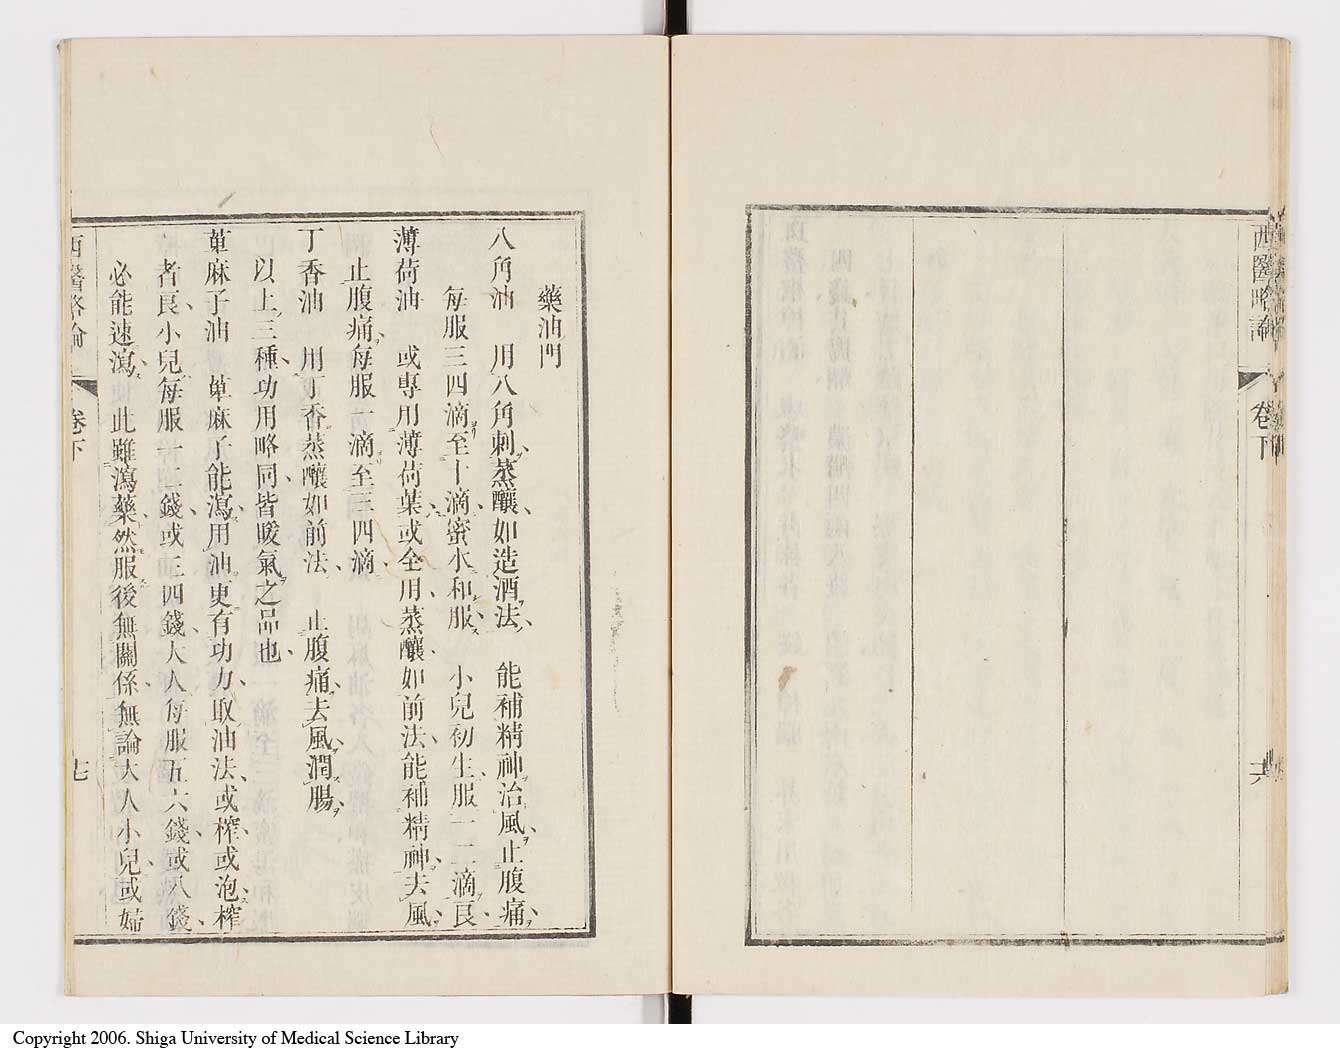 西醫略論
卷下
藥油門
八角油　用八角刺蒸釀如造酒法　能補精神治風止腹痛
每服三四滴至十滴蜜水和服　小兒初生服一二滴良
薄荷油　或專用薄荷葉或全用蒸釀如前法能補精神去風
止腹痛每服一滴至三四滴
丁香油　用丁香蒸釀如前法　止腹痛去風潤腸
以上三種功用略同皆暖氣之品也
萆麻子油　萆麻子能瀉用油更有功力取油法或榨或泡榨
者良小兒每服一二錢或三四錢大人每服五六錢或八錢
必能速瀉　此雖瀉藥然服後無關係無論大人小兒或婦
西醫略論
卷下
七
Copyright 2006. Shiga University of Medical Science Library